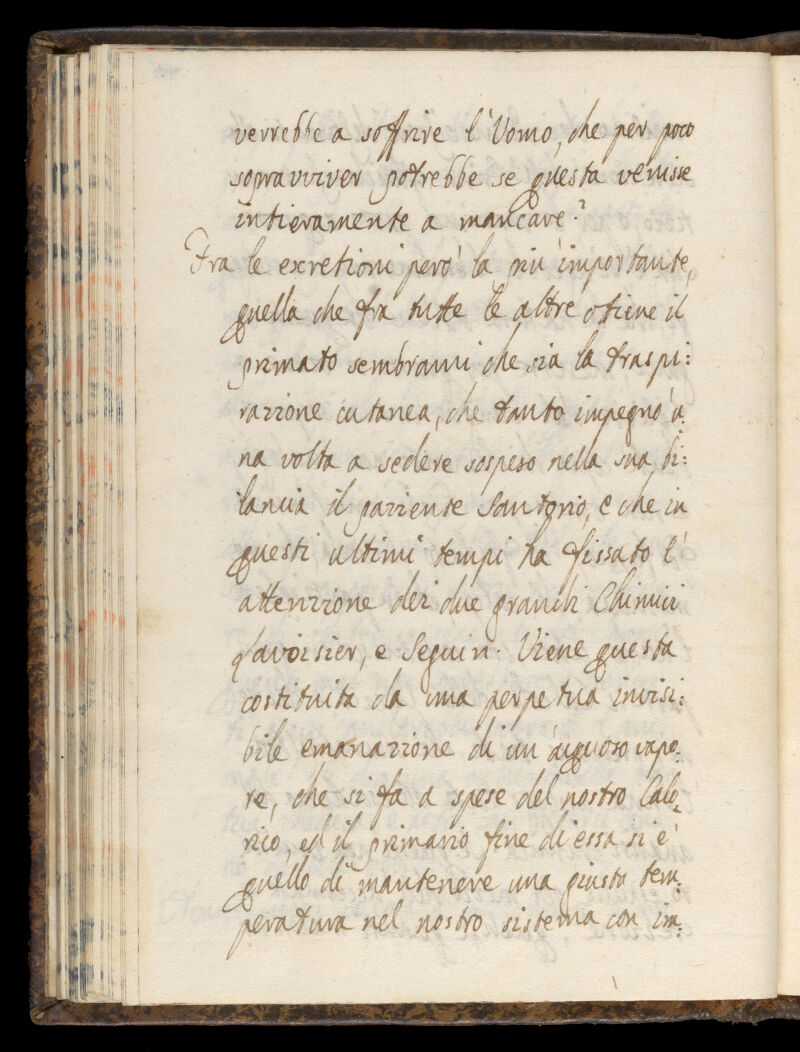 verrebbe a soffrire l'Uomo, che per poco
sopravviver potrebbe se questa venisse
intieramente a mancare?
Fra le excretioni però la più importante,
quella che fra tutte le altre otiene il
primato sembrami che sia la traspi:
razione cutanea, che tanto impegnò u:
na volta a sedere sospeso nella sua bi:
lancia il paziente Santorio, e che in
questi ultimi tempi ha fissato l'
attenzione dei due grandi Chimici
Lavoisier, e Seguin. Viene questa
costituita da una perpetua invisi:
bile emanazione di un'acquoso vapo:
re, che si fa a spese del nostro Calo:
rico, ed il primario fine di essa si è
quello di mantenere una giusta tem:
peratura nel nostro sistema con im: